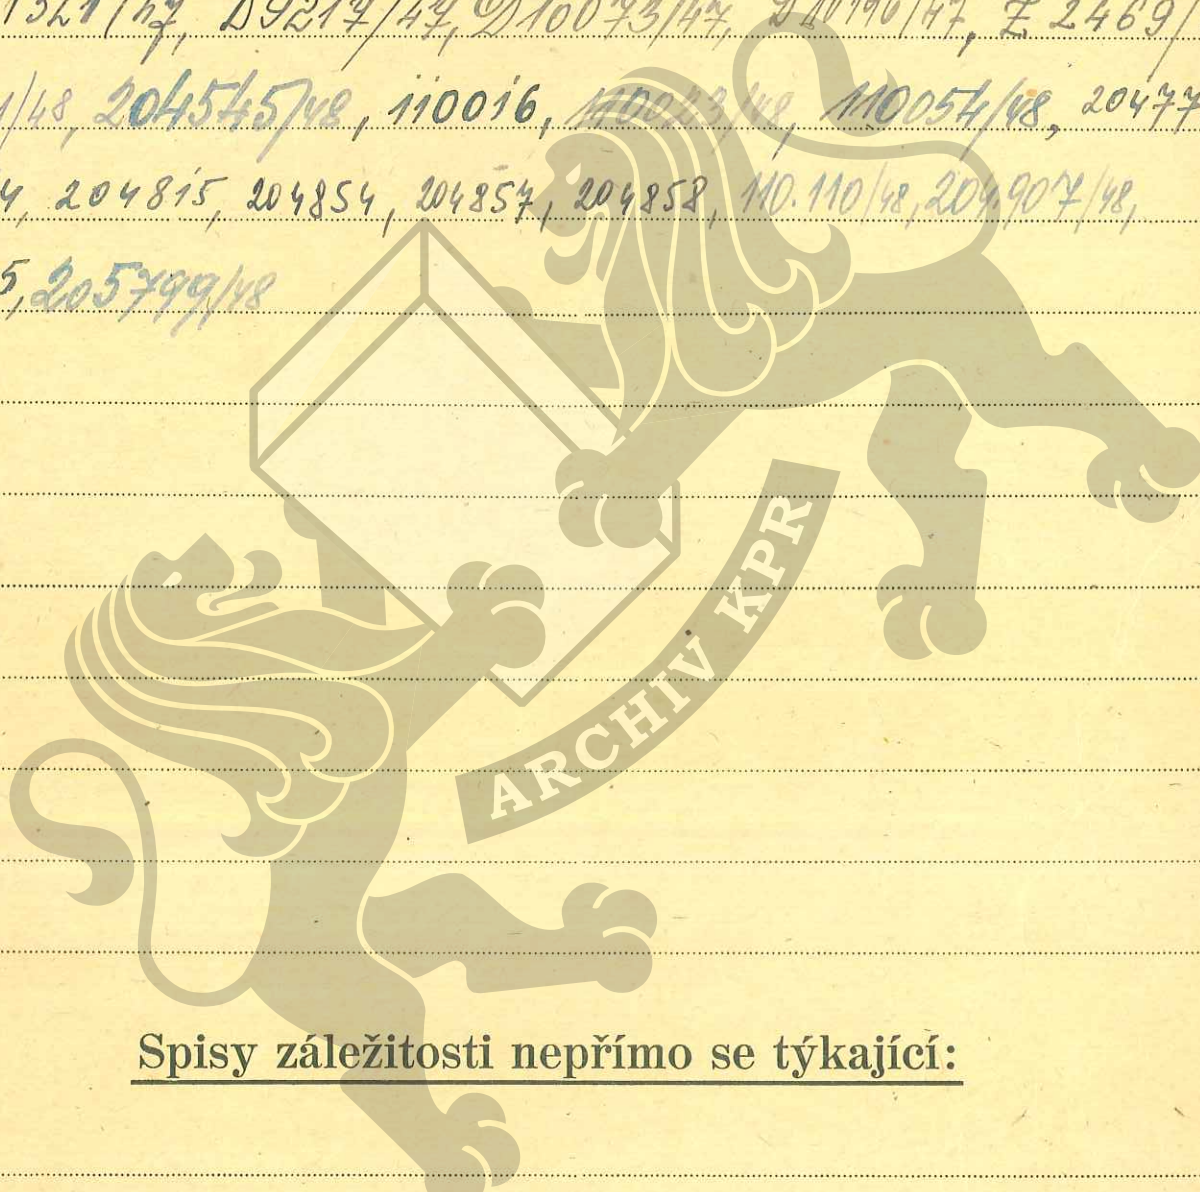 D9217/47, D10073/47, Z 2469/
/48, 204545/48, 110016, 110054/48, 20477
4, 204815, 204854, 204857, 204858, 110.110/48, 204.907/48,
5, 205799/48
ARCHIV KPR
Spisy záležitosti nepřímo se týkající: